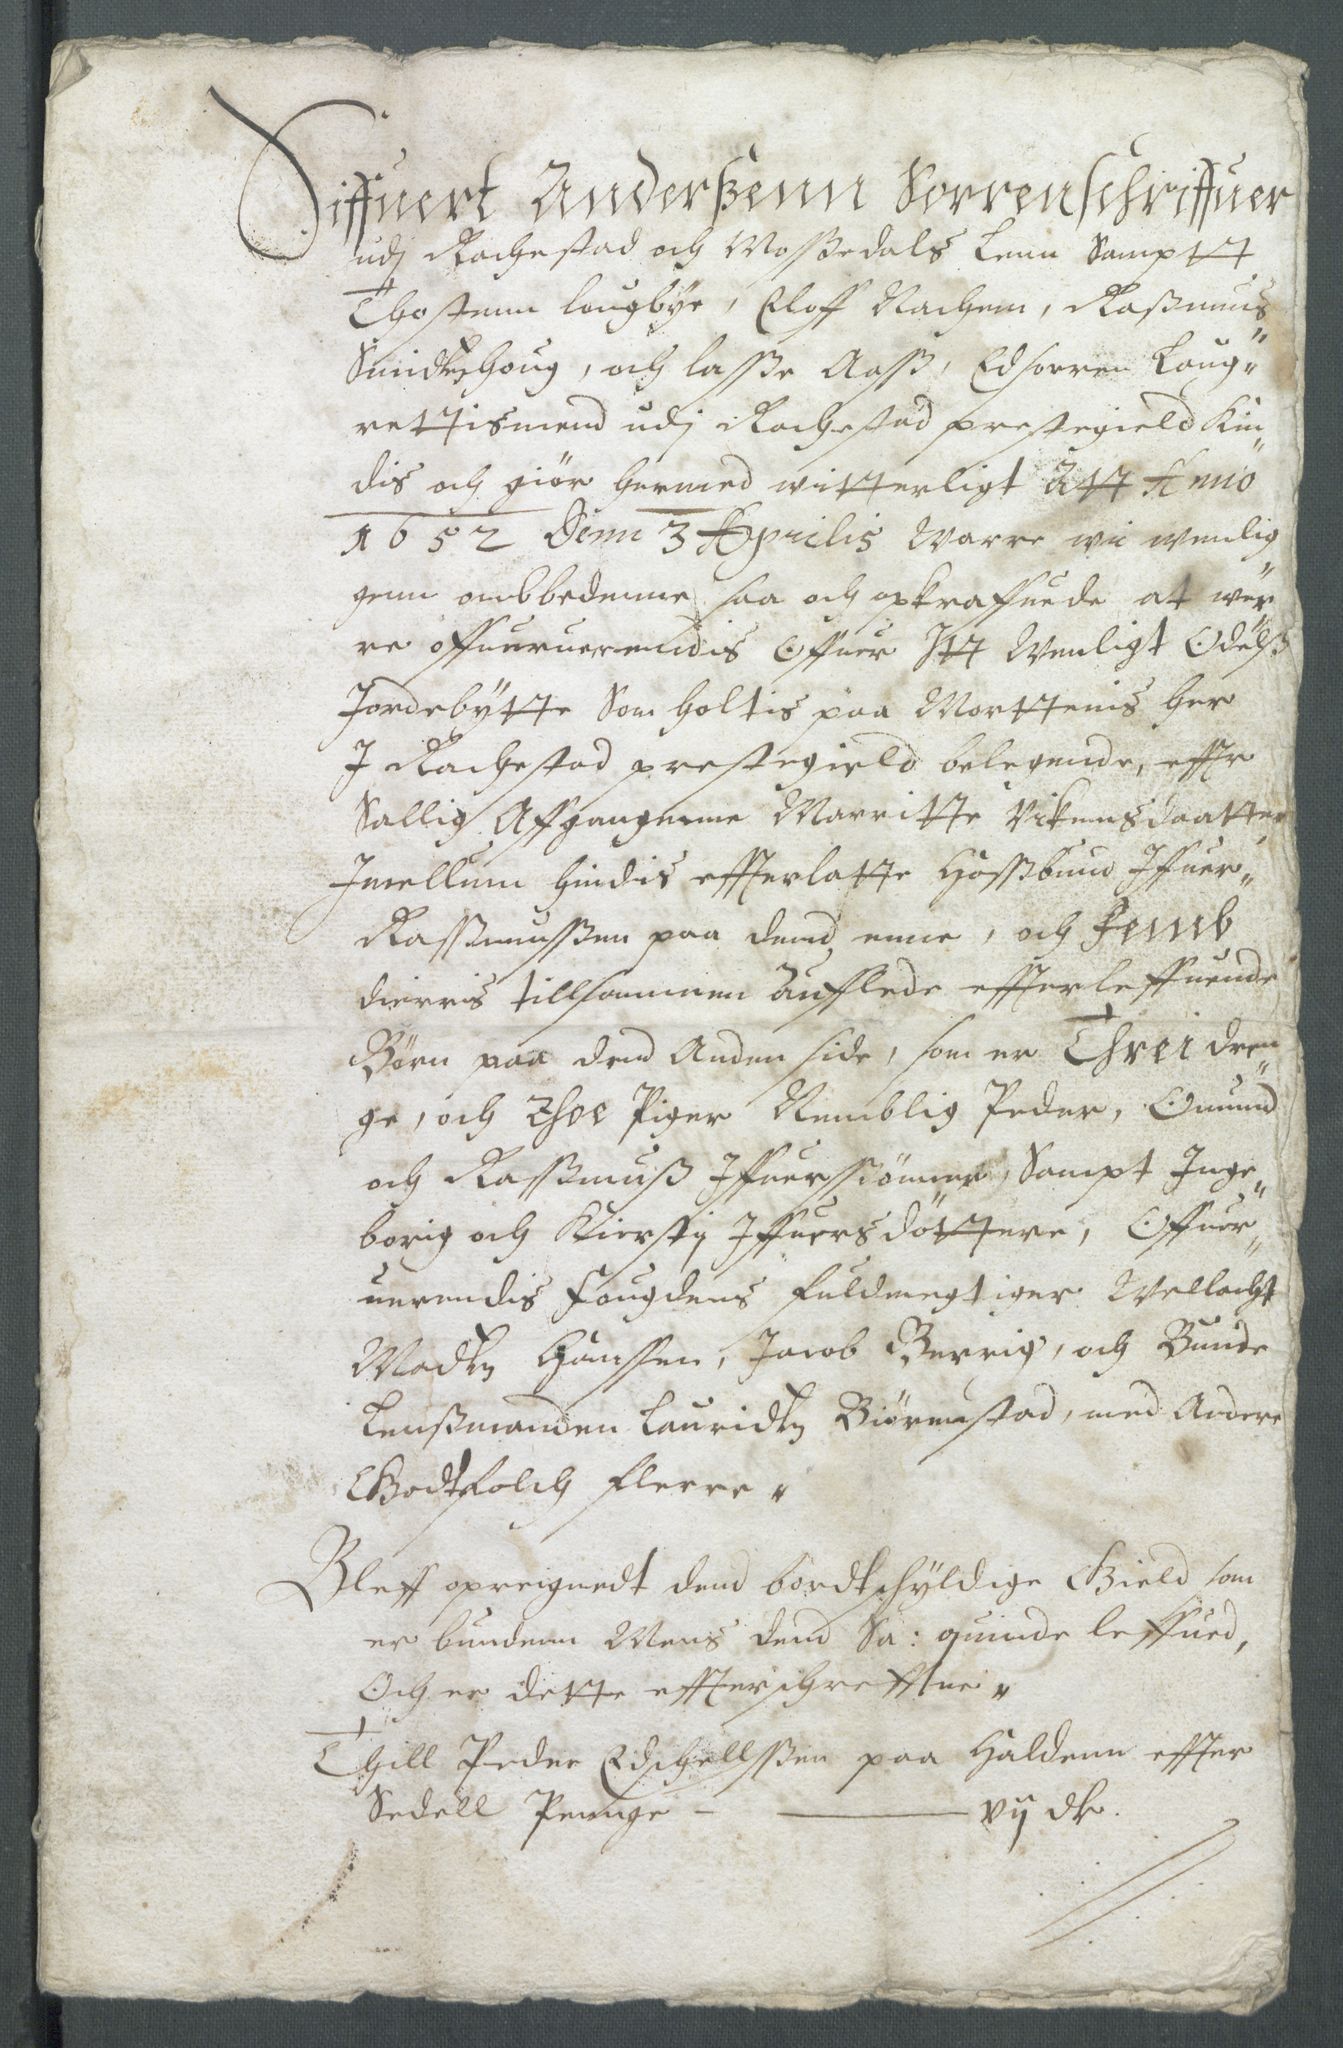 Siffuert Anderßenn Sorrenschriffuer
udj Rachestad och Mossedals Lenn Sampt
Thostenn lougbye, Eloff Rachem, Rasmus
Smidtzhoug, och lasse Aass, Edsorren Laug„
rettismend udj Rachestad prestegield Kien„
dis och giör hermed witterligt Att Anno
1652 Denn 3 Aprilis Warre wii wenlig
genn ombbedenne saa och opkraffuede at wer„
re offueruerendis Offuer Itt Wenligt Odelß
Jordebytte Som holtis paa Mortenns her
I Rachestad prestegield belegende, effter
Sallig Affgangenne Marritte Vikensdaatter
Imellum hindis effterlatte Hossbund Iffuer„
Rassmussen paa dend enne, och Femb
dierris tillsammen auflede effterleffuende
Børn paa dend Anden side, som er Threi dren„
ge, och Thoe Piger Nemblig Peder, Omund
och Rassmuß Iffuerssiönner, Sampt Inge„
borig och Kiersty Iffuersdöttere, Offuer„
uerendis Fougdens fuldmegtiger Wellacht
Madtz Hanssen, Jacob Berrig, och Bunde
Lenßmanden Lauridtz Biörenstad, med Andere
Godtfolch flerre„
Bleff opreignedt dend bordtschyldige Gield som
er bundenn Mens dend Sa: quinde leffued,
Och er dette effterschreffne„
Thill Peder Edschellssen paa Haldenn effter
Sedell Penge — vij dlr.